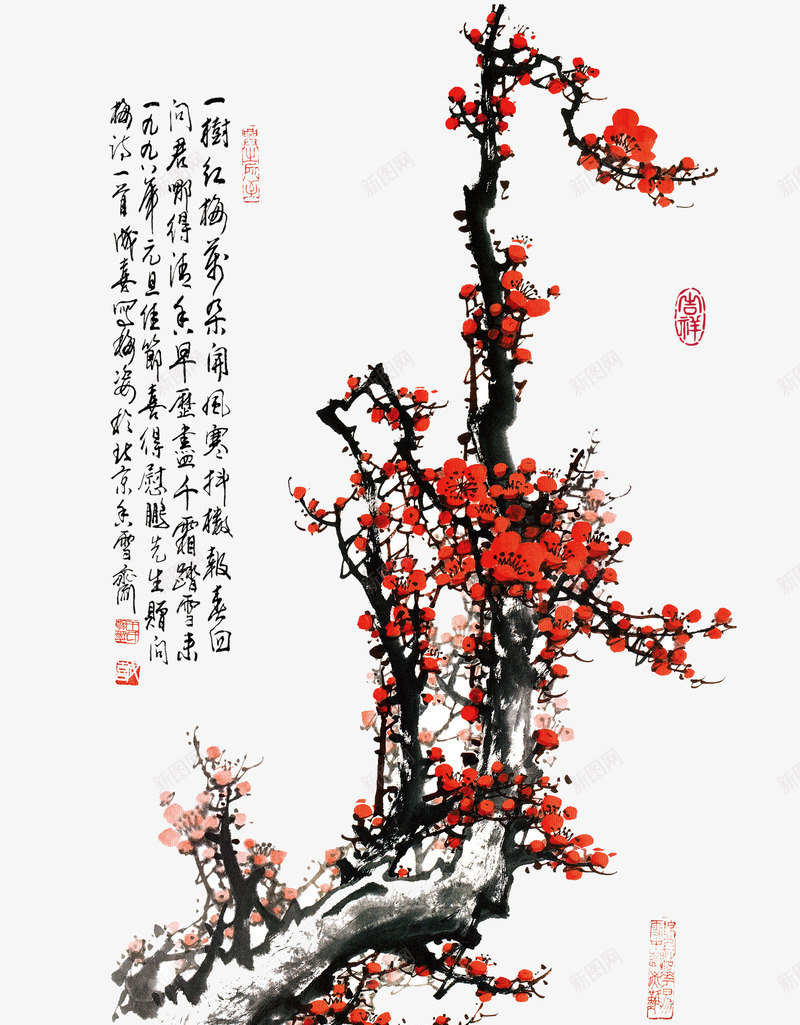 一樹紅梅萬朵開風寒抖擻報春回
问君哪得清香早歷盡千霜踏雪来
一九九八年元旦佳節喜得慰鵬先生贈问
梅诗一首成喜寫梅姿於北京香雪斋
吉祥
新图网